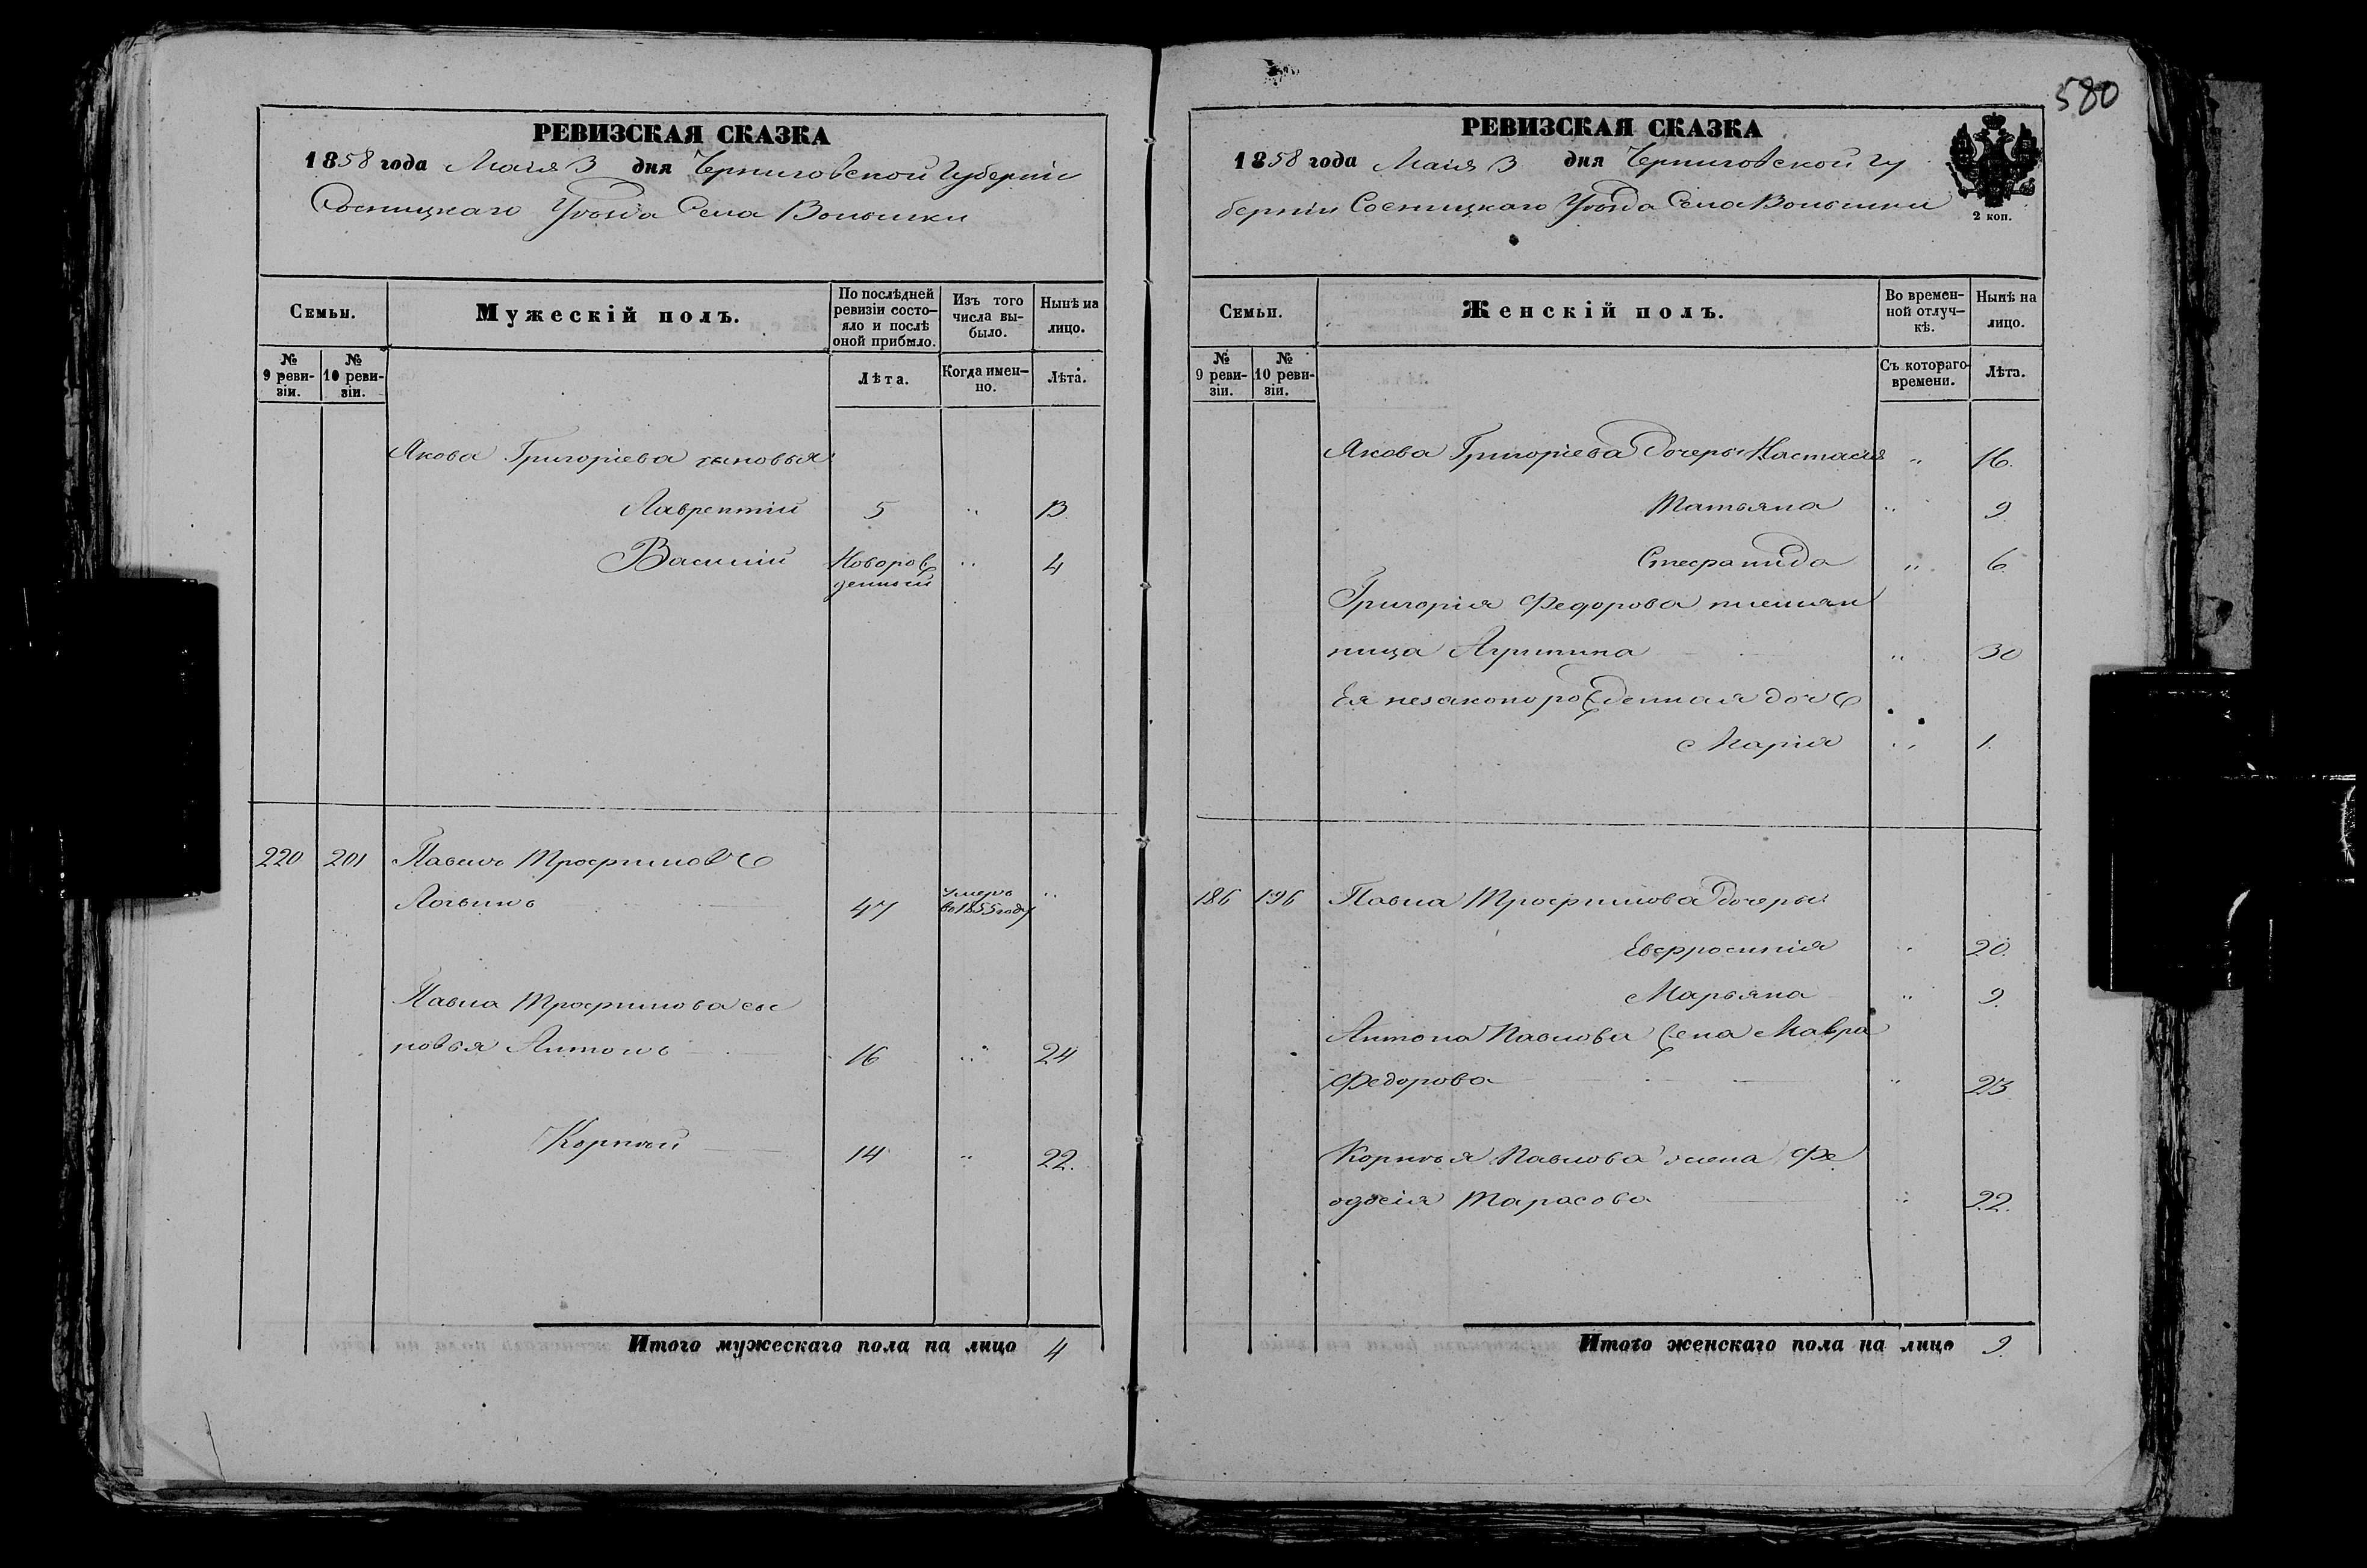 580
РЕВИЗСКАЯ СКАЗКА
1858 года Маия 3 дня Черниговской Губерніи
Сосницкаго Уѣзда Села Волынки
Семьи.
Мужескій полъ.
По послѣдней ревизіи состо-
яло и послѣ
оной прибыло.
Изъ того
числа вы-
было.
Нынѣ на
лицо.
№
9 реви-
зіи.
№
10 реви-
зіи.
Лѣта.
Когда имен-
но.
Лѣта.
Якова Григоріева сыновья
Лаврентій 5 „ 13
Василій Новорож
денный „ 4
220 201 Павелъ Трофимовъ
Логвинъ 47 умеръ
въ 1855 году „
Павла Трофимова сы
новья Антонъ 16 „ 24
Корнѣй 14 „ 22.
Итого мужескаго пола на лицо 4
РЕВИЗСКАЯ СКАЗКА
1858 года Маия 3 дня Черниговской Гу
берніи Сосницкаго Уѣзда Села Волынки
2 коп.
Семьи.
Женскій полъ.
Во времен-
ной отлуч-
кѣ.
Нынѣ на
лицо.
№
9 реви-
зіи.
№
10 реви-
зіи.
Съ котораго
времени.
Лѣта.
Якова Григоріева дочеры Настасія „ 16.
Татьяна „ 9
Стефанида „ 6.
Григорія Федорова племян
ница Агрипина „ 30
Ея незаконорожденная дочь
Марія „ 1.
186 196 Павла Трофимова дочеры
Евфросинія „ 20.
Марьяна „ 9.
Антона Павлова жена Мавра
Федорова „ 23
Корнѣя Павлова жена Фе
одосія Тарасова „ 22.
Итого женскаго пола на лицо 9.